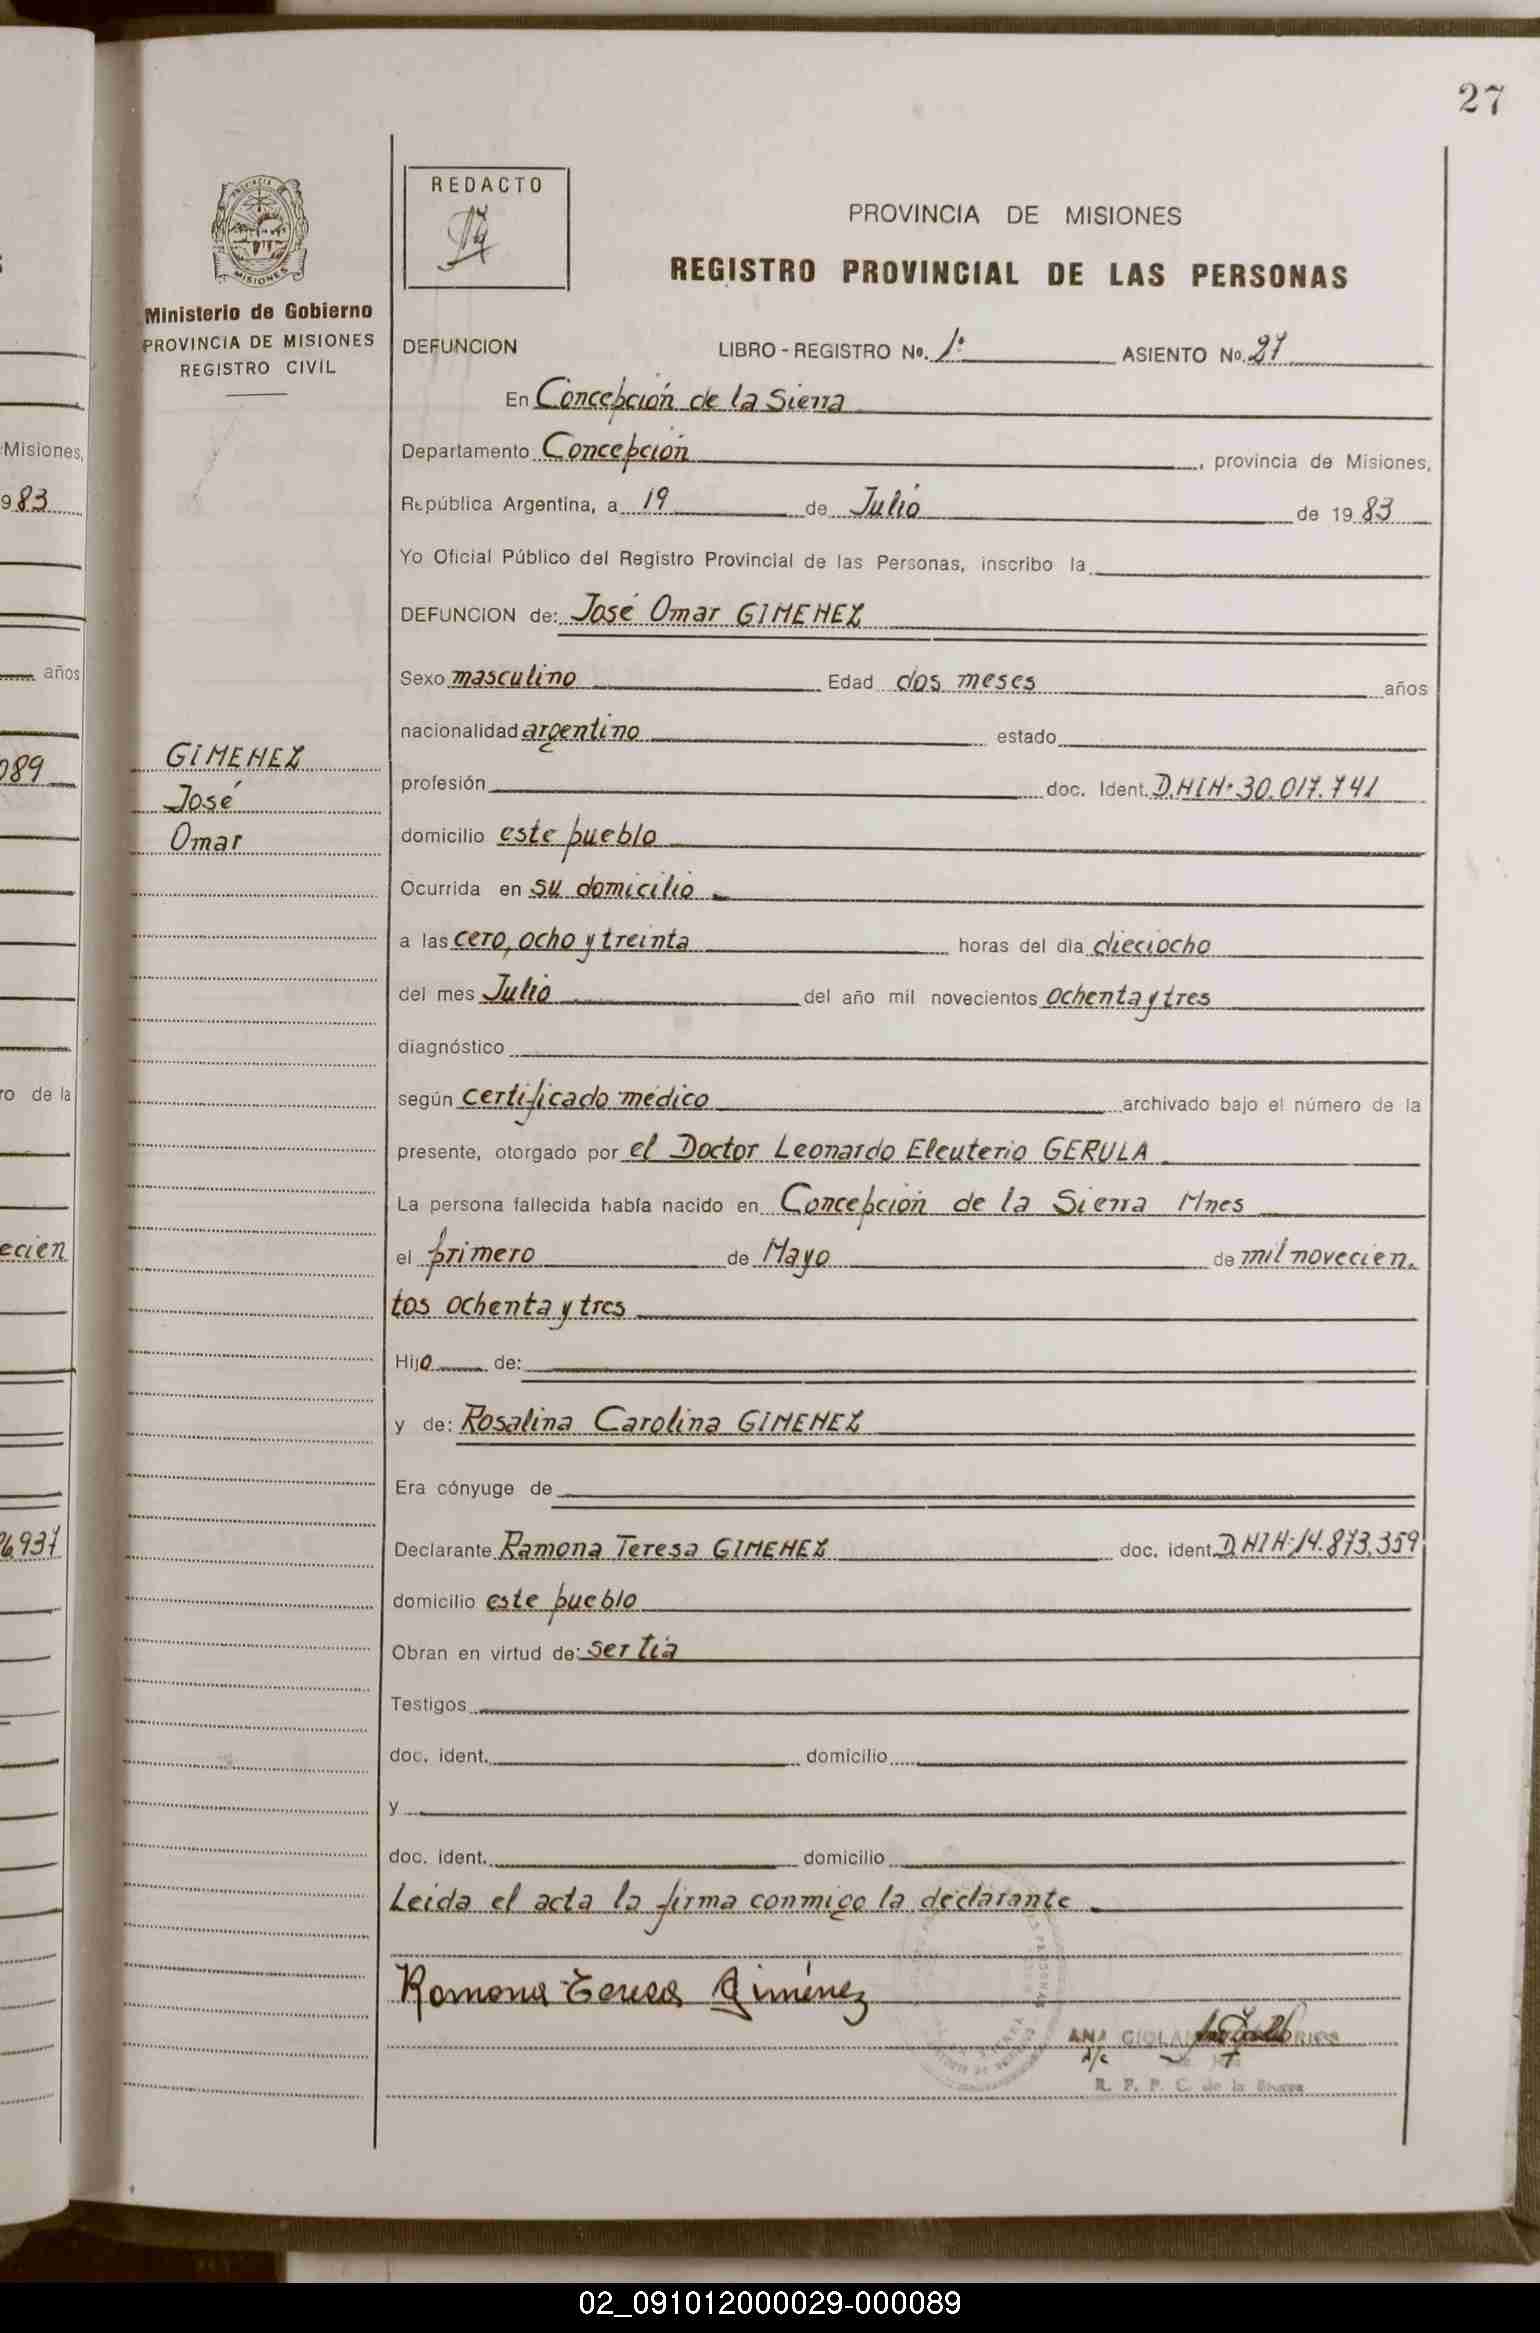 27
REDACTO
PROVINCIA DE MISIONES
REGISTRO PROVINCIAL DE LAS PERSONAS
MISIONES
Ministerio de Gobierno
PROVINCIA DE MISIONES
REGISTRO CIVIL
DEFUNCION LIBRO - REGISTRO No. 1º ASIENTO No. 27
En Concepción de la Sierra
Departamento Concepción, provincia de Misiones,
República Argentina, a 19 de Julio de 1983
Yo Oficial Público del Registro Provincial de las Personas, inscribo la
DEFUNCION de: José Omar GIMENEZ
Sexo masculino Edad dos meses años
nacionalidad argentino estado
GIMENEZ
José
Omar
profesión doc. Ident. D.N.I.N: 30.017.741
domicilio este pueblo
Ocurrida en su domicilio
a las cero, ocho y treinta horas del día dieciocho
del mes Julio del año mil novecientos ochenta y tres
diagnóstico
según certificado médico archivado bajo el número de la
presente, otorgado por el Doctor Leonardo Eleuterio GERULA
La persona fallecida había nacido en Concepción de la Sierra Mnes
el primero de Mayo de mil novecien.
tos ochenta y tres
Hijo de:
y de: Rosalina Carolina GIMENEZ
Era cónyuge de
Declarante Ramona Teresa GIMENEZ doc. ident. D.N.I.N: 14.873.359
domicilio este pueblo
Obran en virtud de: ser tía
Testigos
doc. ident. domicilio
y
doc. ident. domicilio
Leida el acta la firma conmigo la declarante
Ramona Teresa Giménez
ANA
A/c
R. P. P. C. de la Sierra
Misiones,
983
años
089
ro de la
ecien
6937
02_091012000029-000089